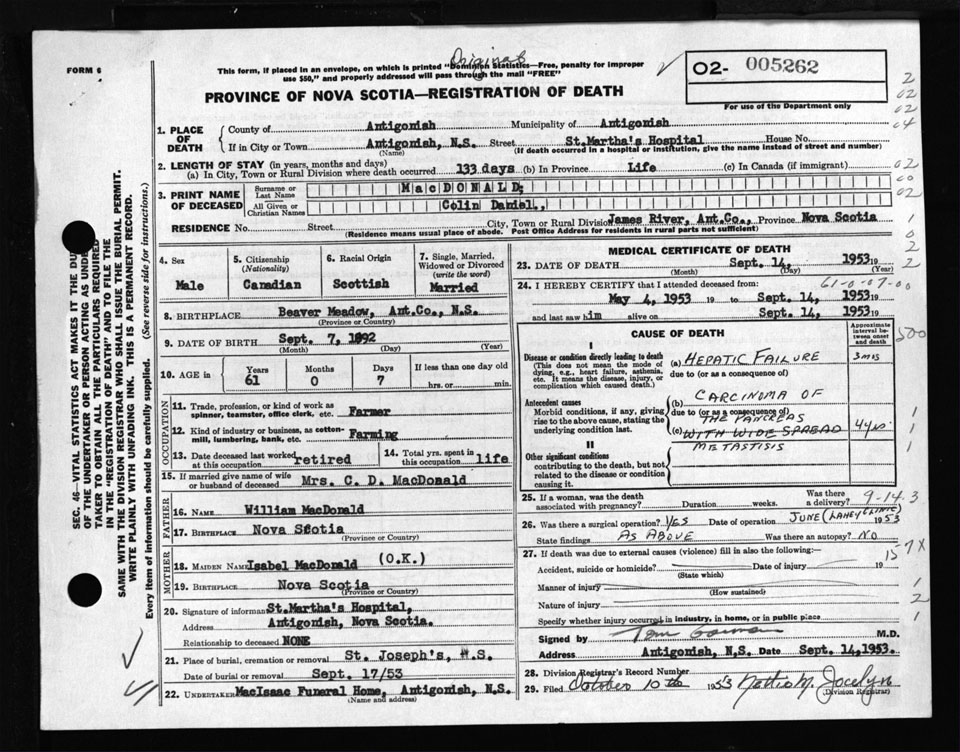 Original
FORM 6
This form, if placed in an envelope, on which is printed "Dominion Statistics—Free, penalty for improper
use $50," and properly addressed will pass through the mail "FREE"
02- 005262
For use of the Department only
PROVINCE OF NOVA SCOTIA—REGISTRATION OF DEATH
1. PLACE OF DEATH County of Antigonish Municipality of Antigonish
If in City or Town Antigonish, N.S. Street St.Martha's Hospital House No.
(Name) (If death occurred in a hospital or institution, give the name instead of street and number)
2. LENGTH OF STAY (in years, months and days)
(a) In City, Town or Rural Division where death occurred 133 days (b) In Province Life (c) In Canada (if immigrant)
3. PRINT NAME OF DECEASED Surname or Last Name MacDONALD;
All Given or Christian Names Colin Daniel.,
RESIDENCE No. Street City, Town or Rural Division James River, Ant.Co., Province Nova Scotia
(Residence means usual place of abode. Post Office Address for residents in rural parts not sufficient)
4. Sex Male
5. Citizenship (Nationality) Canadian
6. Racial Origin Scottish
7. Single, Married, Widowed or Divorced (write the word) Married
8. BIRTHPLACE Beaver Meadow, Ant.Co., N.S.
(Province or Country)
9. DATE OF BIRTH Sept. 7, 1892
(Month) (Day) (Year)
10. AGE in Years 61 Months 0 Days 7 If less than one day old hrs. or min.
OCCUPATION
11. Trade, profession or kind of work as spinner, teamster, office clerk, etc. Farmer
12. Kind of industry or business, as cotton-mill, lumbering, bank, etc. Farming
13. Date deceased last worked at this occupation retired
14. Total yrs. spent in this occupation life
15. If married give name of wife or husband of deceased Mrs. C. D. MacDonald
FATHER
16. Name William MacDonald
17. Birthplace Nova Scotia
(Province or Country)
MOTHER
18. Maiden Name Isabel MacDonald (O.K.)
19. Birthplace Nova Scotia
(Province or Country)
20. Signature of informant St.Martha's Hospital,
Address Antigonish, Nova Scotia.
Relationship to deceased NONE
21. Place of burial, cremation or removal St. Joseph's, N.S.
Date of burial or removal Sept. 17/53
22. Undertaker MacIsaac Funeral Home, Antigonish, N.S.
(Name and address)
MEDICAL CERTIFICATE OF DEATH
23. DATE OF DEATH Sept. 14, 1953 19
(Month) (Day) (Year)
24. I HEREBY CERTIFY that I attended deceased from: 61-0-07-00
May 4, 1953 19 to Sept. 14, 1953 19
and last saw him alive on Sept. 14, 1953 19
CAUSE OF DEATH
Approximate interval between onset and death
I
Disease or condition directly leading to death
(This does not mean the mode of dying, e.g., heart failure, asthenia, etc. It means the disease, injury, or complication which caused death.)
(a) HEPATIC FAILURE 3 mos
due to (or as a consequence of)
Antecedent causes
Morbid conditions, if any, giving rise to the above cause, stating the underlying condition last.
(b) CARCINOMA OF
due to (or as a consequence of)
THE PANCREAS
(c) WITH WIDE SPREAD
METASTISIS
II
Other significant conditions
contributing to the death, but not related to the disease or condition causing it.
25. If a woman, was the death associated with pregnancy? Duration weeks. Was there a delivery? 9-14-3
26. Was there a surgical operation? YES Date of operation JUNE (LAHEY CLINIC) 1953
State findings AS ABOVE Was there an autopsy? NO
157X
27. If death was due to external causes (violence) fill in also the following:—
Accident, suicide or homicide? Date of injury 19
(State which)
Manner of injury
(How sustained)
Nature of injury
Specify whether injury occurred in industry, in home, or in public place
Signed by M.D.
Address Antigonish, N.S. Date Sept. 14,1953.
28. Division Registrar's Record Number
29. Filed October 10th 1953 Nettie M. Jocelyn
(Division Registrar)
SEC. 46—VITAL STATISTICS ACT MAKES IT THE DUTY
OF THE UNDERTAKER OR PERSON ACTING AS UNDER-
TAKER TO OBTAIN ALL THE PARTICULARS REQUIRED
IN THE "REGISTRATION OF DEATH" AND TO FILE THE
SAME WITH THE DIVISION REGISTRAR WHO SHALL ISSUE THE BURIAL PERMIT.
WRITE PLAINLY WITH UNFADING INK. THIS IS A PERMANENT RECORD.
Every item of information should be carefully supplied. (See reverse side for instructions.)
2
02
02
04
02
00
02
1
0
2
2
500
1
1
1
1
2
1